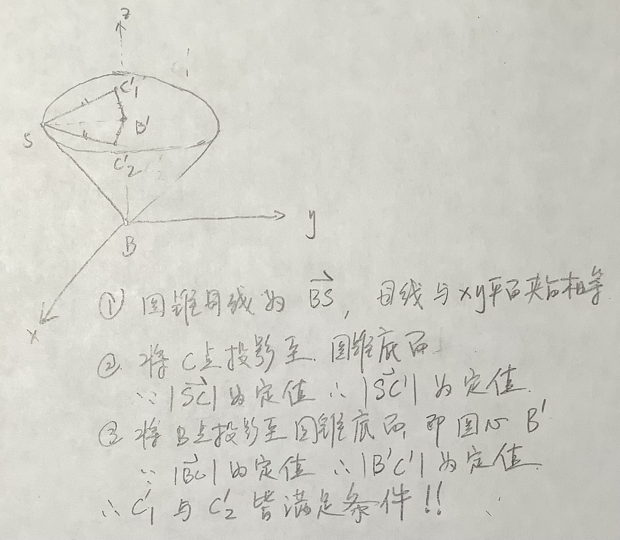 z
C'₁
S
B'
C'₂
B
y
x
① 圆锥母线为 BS, 母线与xy平面夹角相等
② 将C点投影至圆锥底面
∵ |SC| 为定值 ∴ |SC'| 为定值.
③ 将B点投影至圆锥底面, 即圆心 B'
∵ |BC| 为定值 ∴ |B'C'| 为定值
∴ C'₁ 与 C'₂ 皆满足条件!!